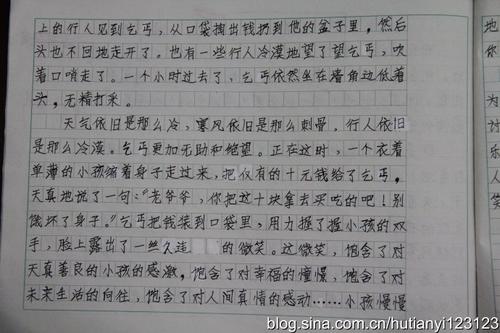 上的行人见到乞丐，从口袋掏出钱扔到他的盆子里，然后
头也不回地走开了。也有一些行人冷漠地望了望乞丐，吹
着口哨走了。一个小时过去了，乞丐依然坐在墙角边低着
头，无精打采。
天气依旧是那么冷，寒风依旧是那么刺骨。行人依旧
是那么冷漠。乞丐更加无助和绝望。正在这时，一个衣着
单薄的小孩缩着身子走过来，把仅有的十元钱给了乞丐，
天真地说了一句：“老爷爷，你把这十块拿去买吃的吧！别
饿坏了身子。”乞丐把钱装到口袋里，用力握了握小孩的双
手，脸上露出了一丝久违 的微笑。这微笑，饱含了对
天真善良的小孩的感激，饱含了对幸福的憧憬，饱含了对
未来生活的向往，饱含了对人间真情的感动……小孩慢慢
地
你
为
讨
乐
人
笑
blog.sina.com.cn/hutianyi123123